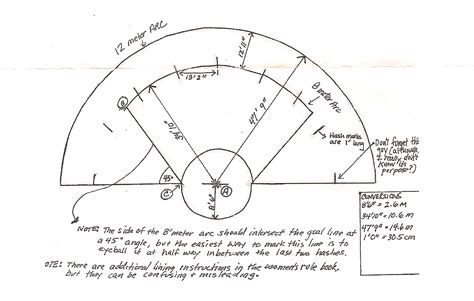 12 meter ARC
12'11"
13'2"
8 meter Arc
34'10"
47' 9"
Hash marks
are 1' long
Don't forget this
guy (although
I really don't
know its
purpose?)
B
45°
C
A
8'6"
CONVERSIONS
8'6" = 2.6 m
34'10" = 10.6 m
47'9" = 14.6 m
1'0" = 30.5 cm
NOTE: The side of the 8'meter arc should intersect the goal line at
a 45° angle, but the easiest way to mark this line is to
eyeball it at half way inbetween the last two hashes.
OTE: There are additional lining instructions in the women's rule book,
but they can be confusing + misleading.